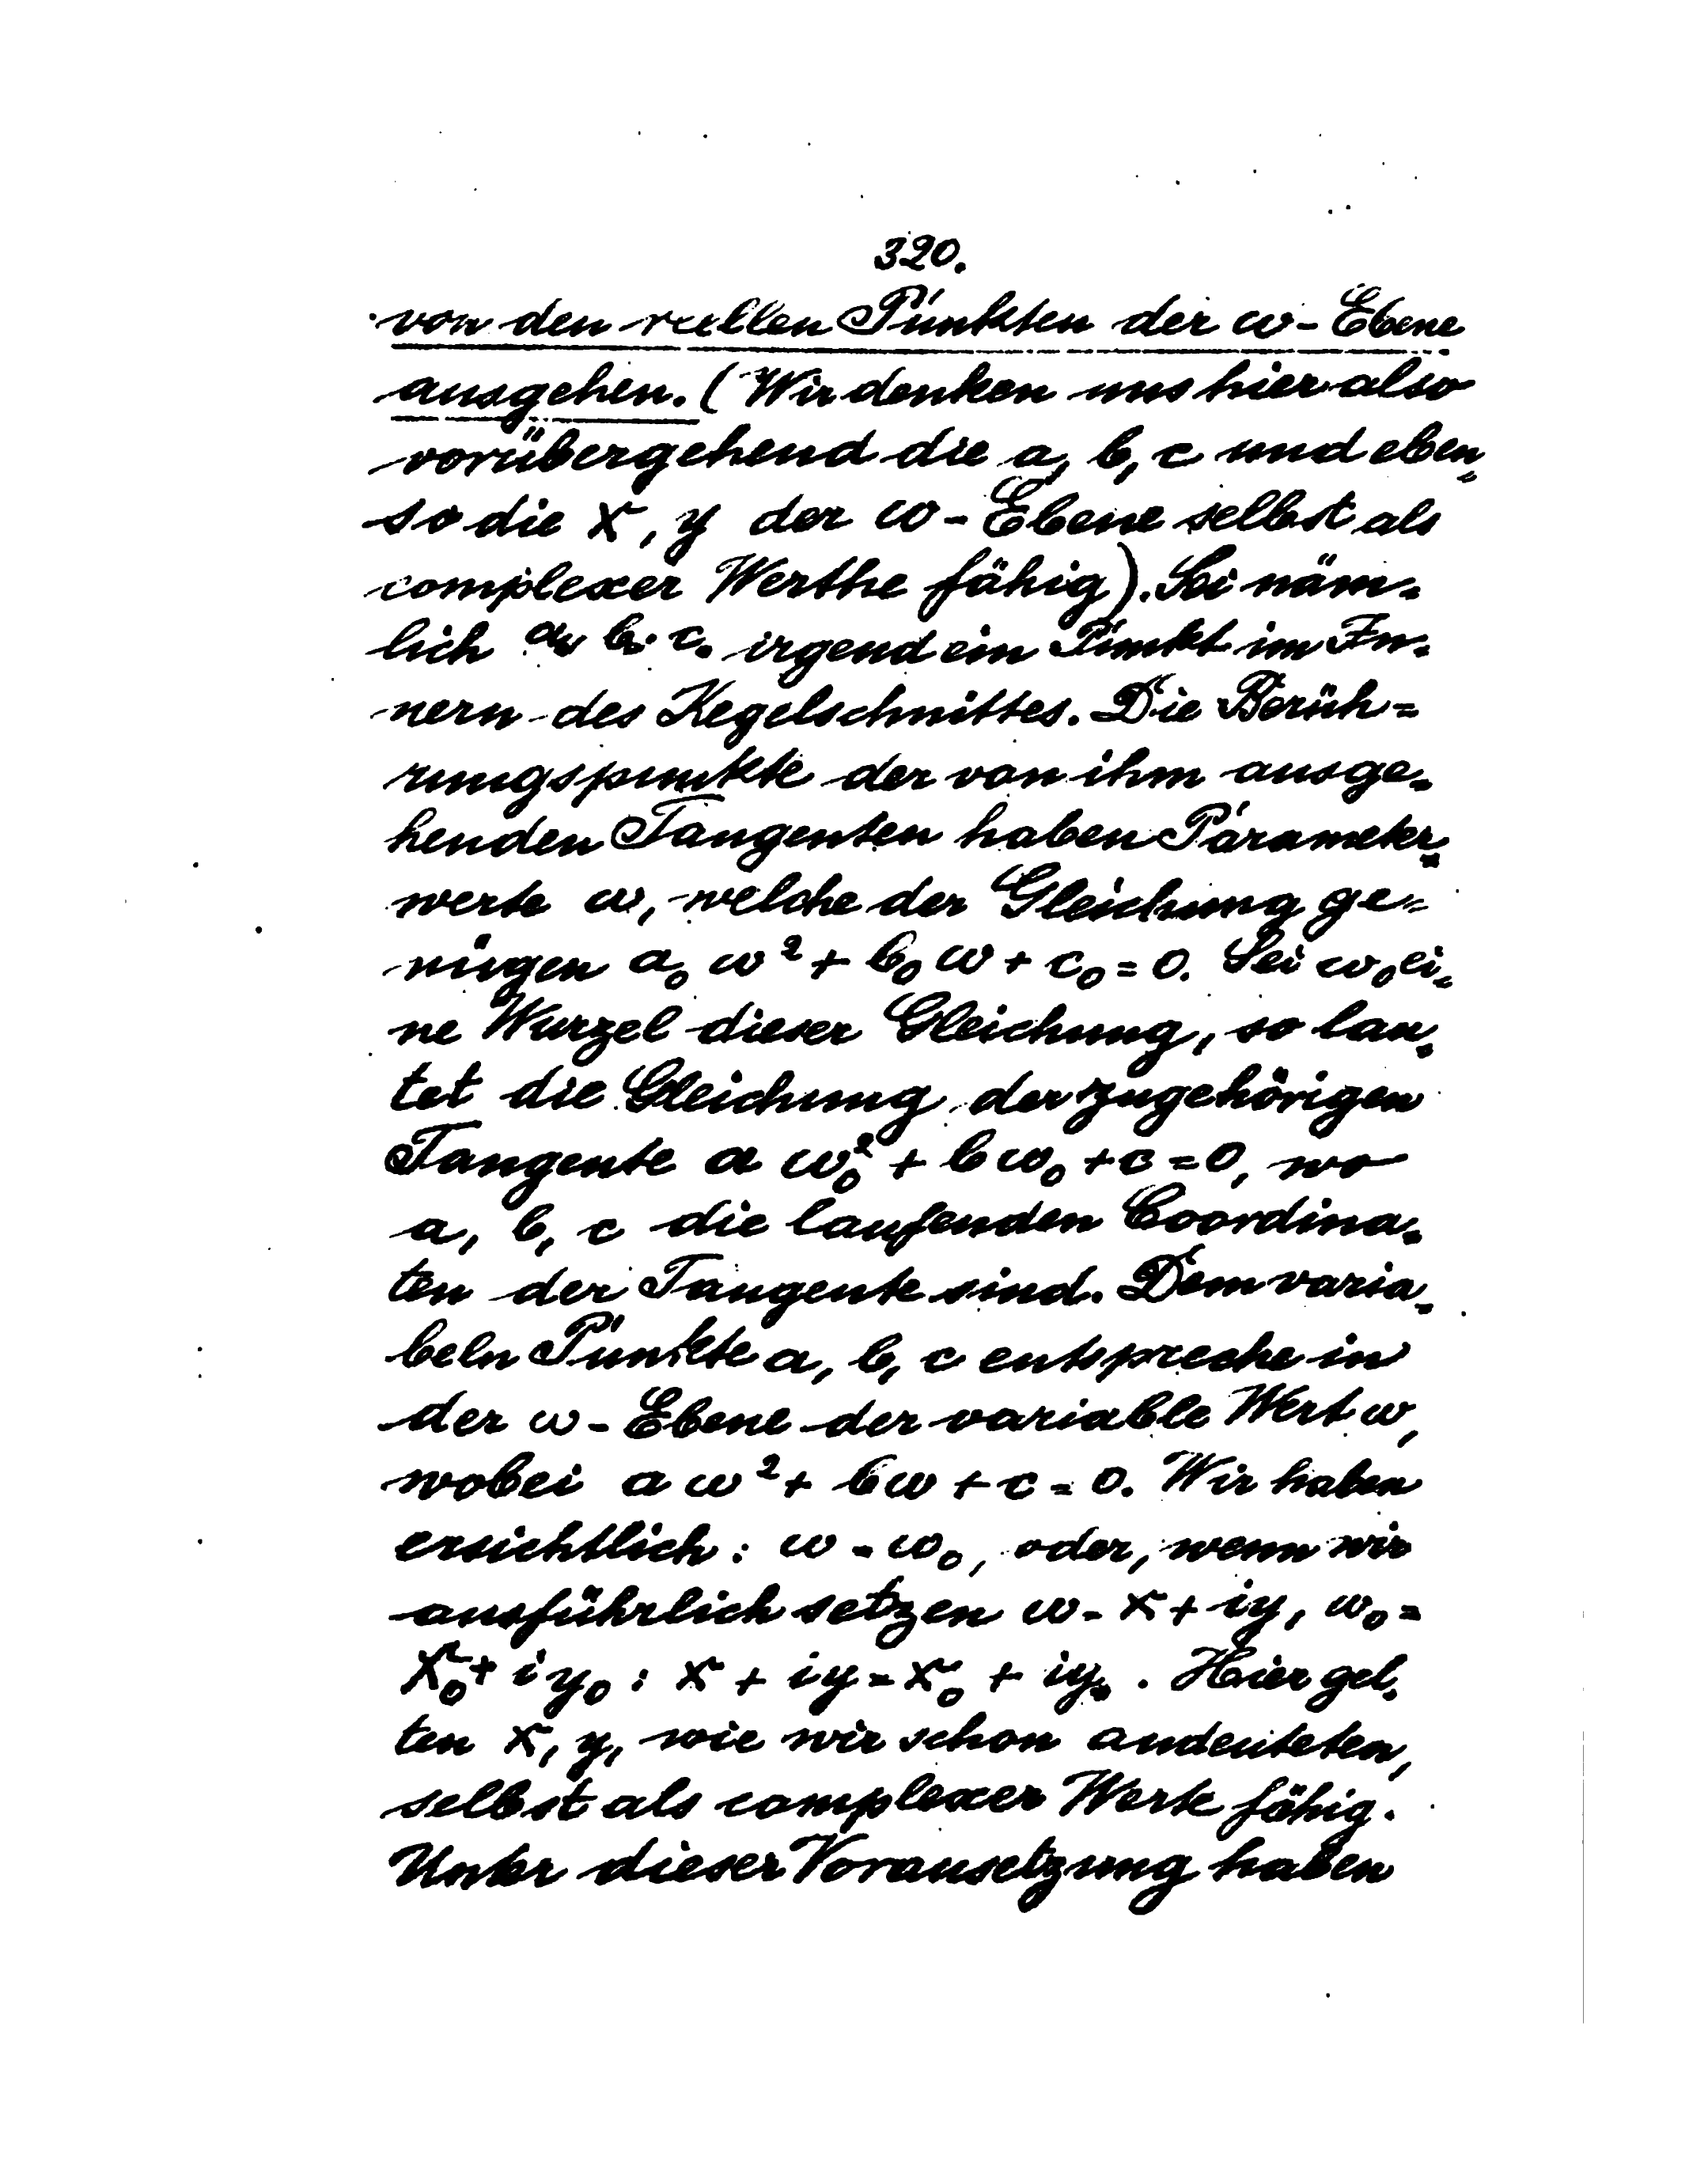 320.
von den reellen Punkten der ω-Ebene
ausgehen. (Wir denken uns hier also
vorübergehend die a, b, c und eben-
so die x, y der ω-Ebene selbst als
complexer Werthe fähig). Sei näm-
lich a₀ b₀ c₀ irgend ein Punkt im In-
nern des Kegelschnittes. Die Berüh=
rungspunkte der von ihm ausge-
henden Tangenten haben Parameter-
werte ω, welche der Gleichung ge-
nügen a₀ ω² + b₀ ω + c₀ = 0. Sei ω₀ ei-
ne Wurzel dieser Gleichung, so lau-
tet die Gleichung der zugehörigen
Tangente a ω₀² + b ω₀ + c = 0, wo
a, b, c die laufenden Coordina-
ten der Tangente sind. Dem varia-
beln Punkte a, b, c entspreche in
der ω-Ebene der variable Wert ω,
wobei a ω² + b ω + c = 0. Wir haben
ersichtlich: ω = ω₀, oder, wenn wir
ausführlich setzen ω = x + iy, ω₀ =
x₀ + i y₀ : x + iy = x₀ + iy₀. Hier gel-
ten x, y, wie wir schon andeuteten,
selbst als complexer Werte fähig.
Unter dieser Voraussetzung haben